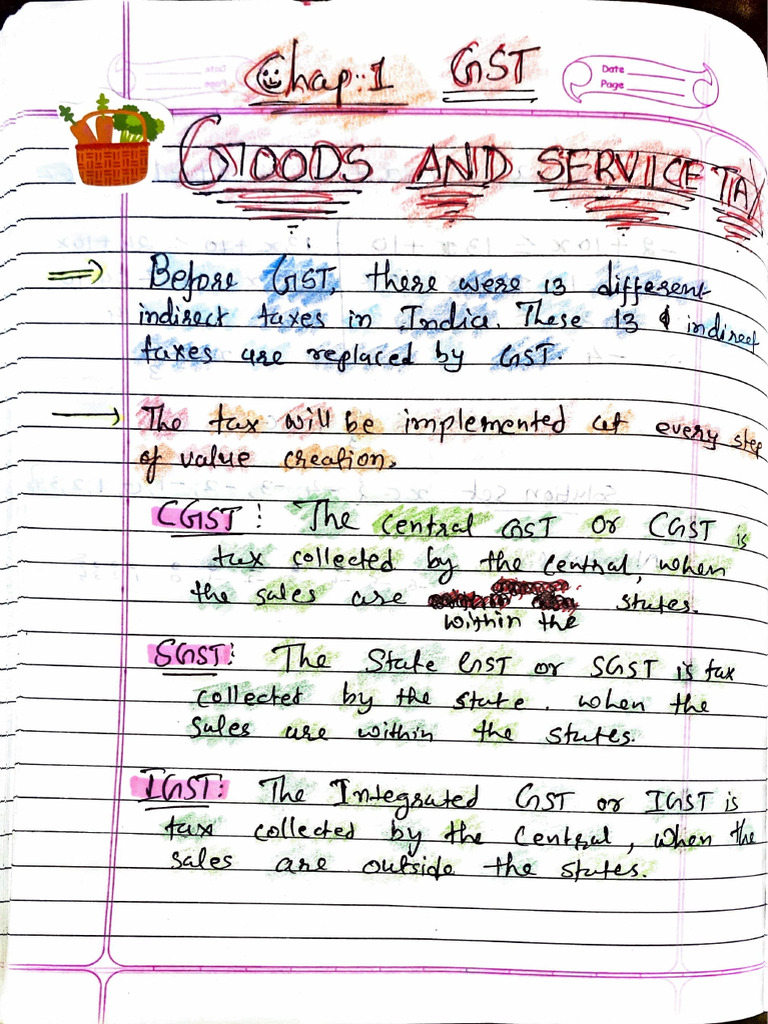 Chap:1 GST
Date
Page
GOODS AND SERVICE TAX
Before GST, there were 13 different
indirect taxes in India. These 13 indirect
taxes are replaced by GST.
The tax will be implemented at every step
of value creation.
CGST: The Central GST or CGST is
tax collected by the central, when
the sales are states.
within the
SGST: The State GST or SGST is tax
collected by the state. when the
sales are within the states.
IGST: The Integrated GST or IGST is
tax collected by the Central, when the
sales are outside the states.